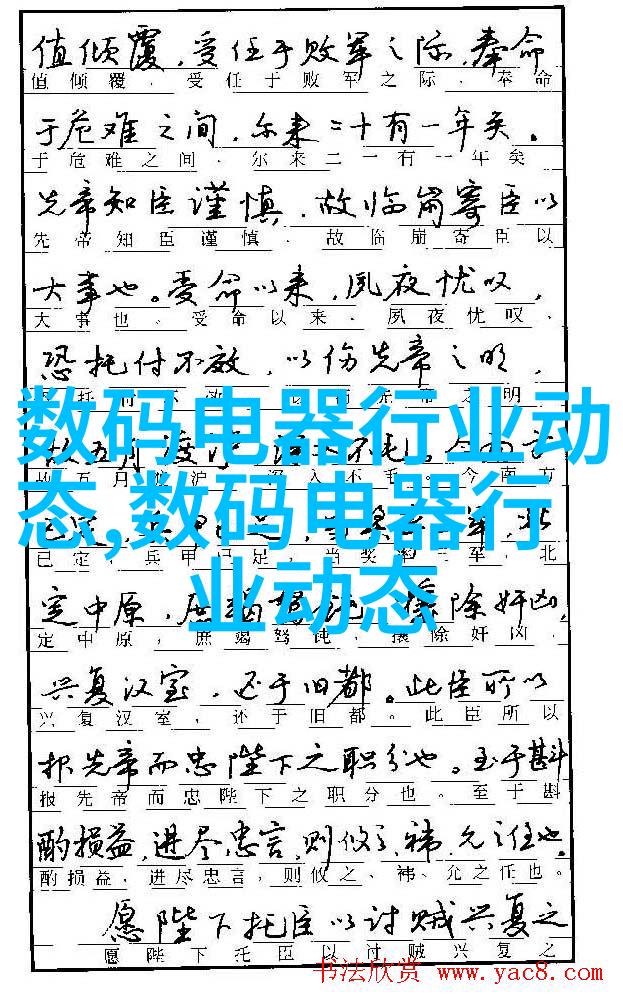 值倾覆，受任于败军之际，奉命
值倾覆．受任于败军之际．奉命
于危难之间，尔来二十有一年矣。
于危难之间．尔来二十有一年矣
先帝知臣谨慎，故临崩寄臣以
先帝知臣谨慎．故临崩寄臣以
大事也。受命以来，夙夜忧叹，
大事也．受命以来．夙夜忧叹．
恐托付不效，以伤先帝之明，
托付不效 帝之明
故五月渡 不毛。今南方
故五月 沪 深入不毛．今南方
数码电器行业动
态,数码电器行
业动态
已定，兵甲已足，当奖 军，北
已定．兵甲已足．当奖 三军．北
定中原，庶竭驽钝，攘除奸凶，
定中原，庶竭驽钝，攘除奸凶．
兴复汉室，还于旧都。此臣所以
兴复汉室，还于旧都。此臣所以
报先帝而忠陛下之职分也。至于斟
报先帝而忠陛下之职分也。至于斟
酌损益，进尽忠言，则攸之、祎、允之任也。
酌损益．进尽忠言，则攸之、祎、允之任也。
愿陛下托臣以讨贼兴复之
愿陛下托臣以讨贼兴复之
书法欣赏 www.yac8.com